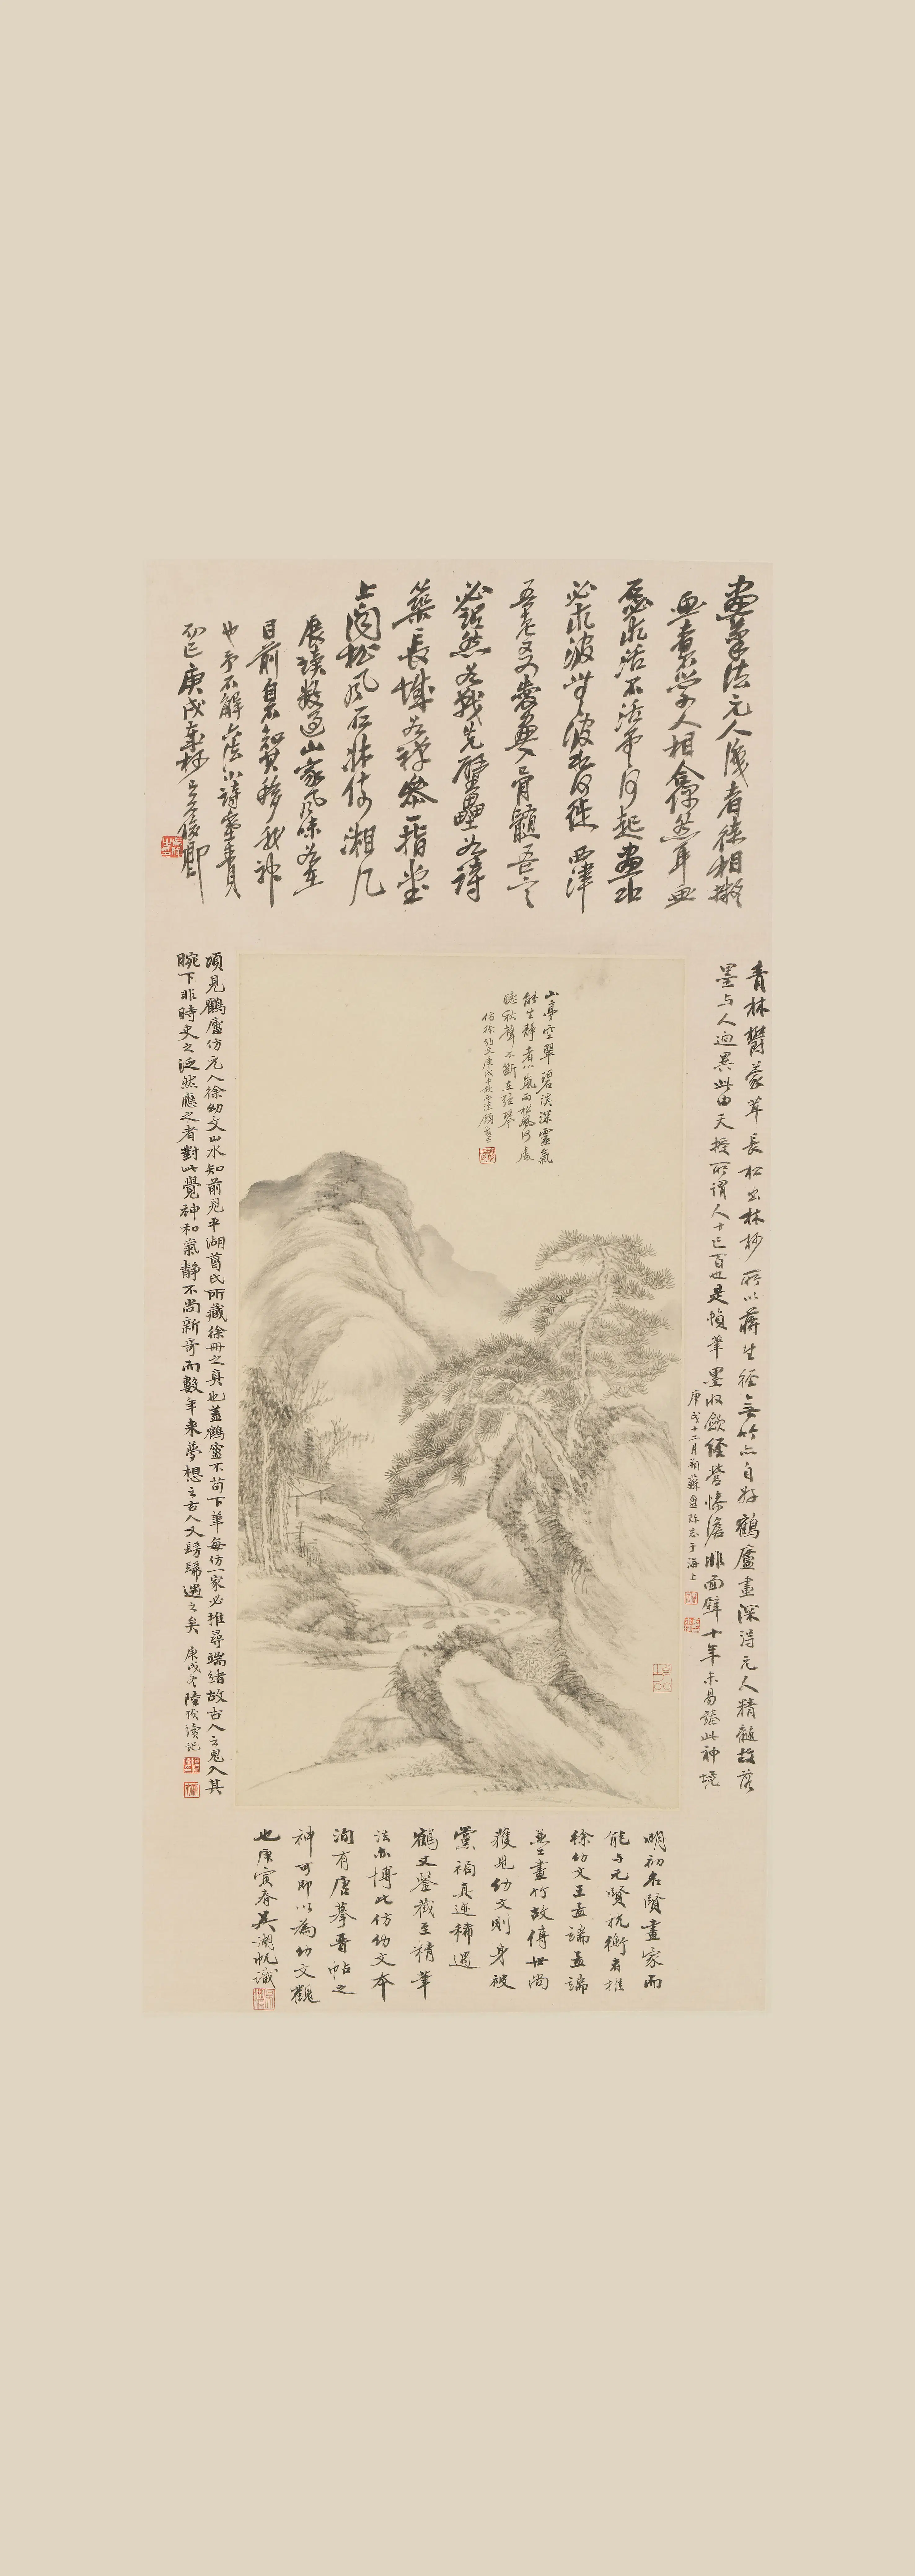 畫筆法元人淺者徒相擬
畫者不學人相合偶然耳畫
石必求活不活雲何起畫水
必求波無波水何徙西津
吾老友愛畫入骨髓吾言
必鋭然為我先壁壘為詩
築長城為禪參一指堂
上聞松風石牀倚湘几
展讀數過山家風味在
目前自不知其移我神
也予不解六法小詩塞責
而已庚戌
青林鬱蒙茸長松出林杪所以蔣生徑無竹亦自好鶴廬畫深得元人精髓故落
墨與人迥異此由天授所謂人十己百也是幀筆墨收歛經營慘澹非面壁十年未易臻此神境
庚戌十二月朔蘇盦 志于海上
山亭空翠碧溪深靈氣
能生靜者心嵐雨松風何處
聽秋聲不斷在弦琴
仿徐幼文庚戌中秋西津顧
頃見鶴廬仿元人徐幼文山水知前見平湖葛氏所藏徐冊之真也蓋鶴廬不苟下筆每仿一家必推尋端緒故古人之鬼入其
腕下非時史之泛然應之者對此覺神和氣靜不尚新奇而數年來夢想之古人又髣髴遇之矣
庚戌冬陸恢讀記
明初名賢畫家而
能与元賢抗衡者推
徐幼文王孟端孟端
兼工畫竹故傳世尚
獲見幼文則身被
黨禍真迹稀遇
鶴丈鑒藏至精筆
法亦博此仿幼文本
洵有唐摹晋帖之
神可即以為幼文觀
也庚寅春吳湖帆識